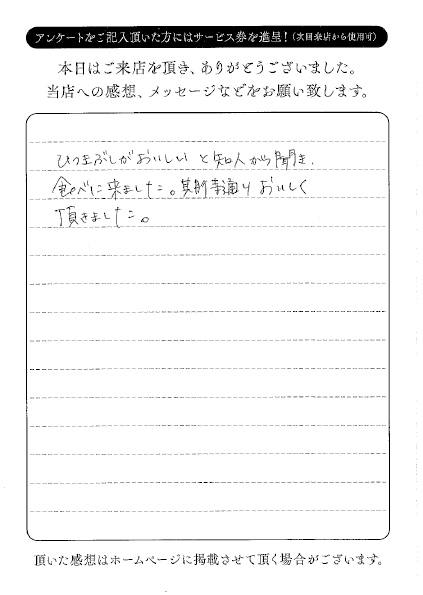 アンケートをご記入頂いた方にはサービス券を進呈!(次回来店から使用可)
本日はご来店を頂き、ありがとうございました。
当店への感想、メッセージなどをお願い致します。
ひつまぶしがおいしいと知人から聞き、
食べに来ました。期待通りおいしく
頂きました。
頂いた感想はホームページに掲載させて頂く場合がございます。